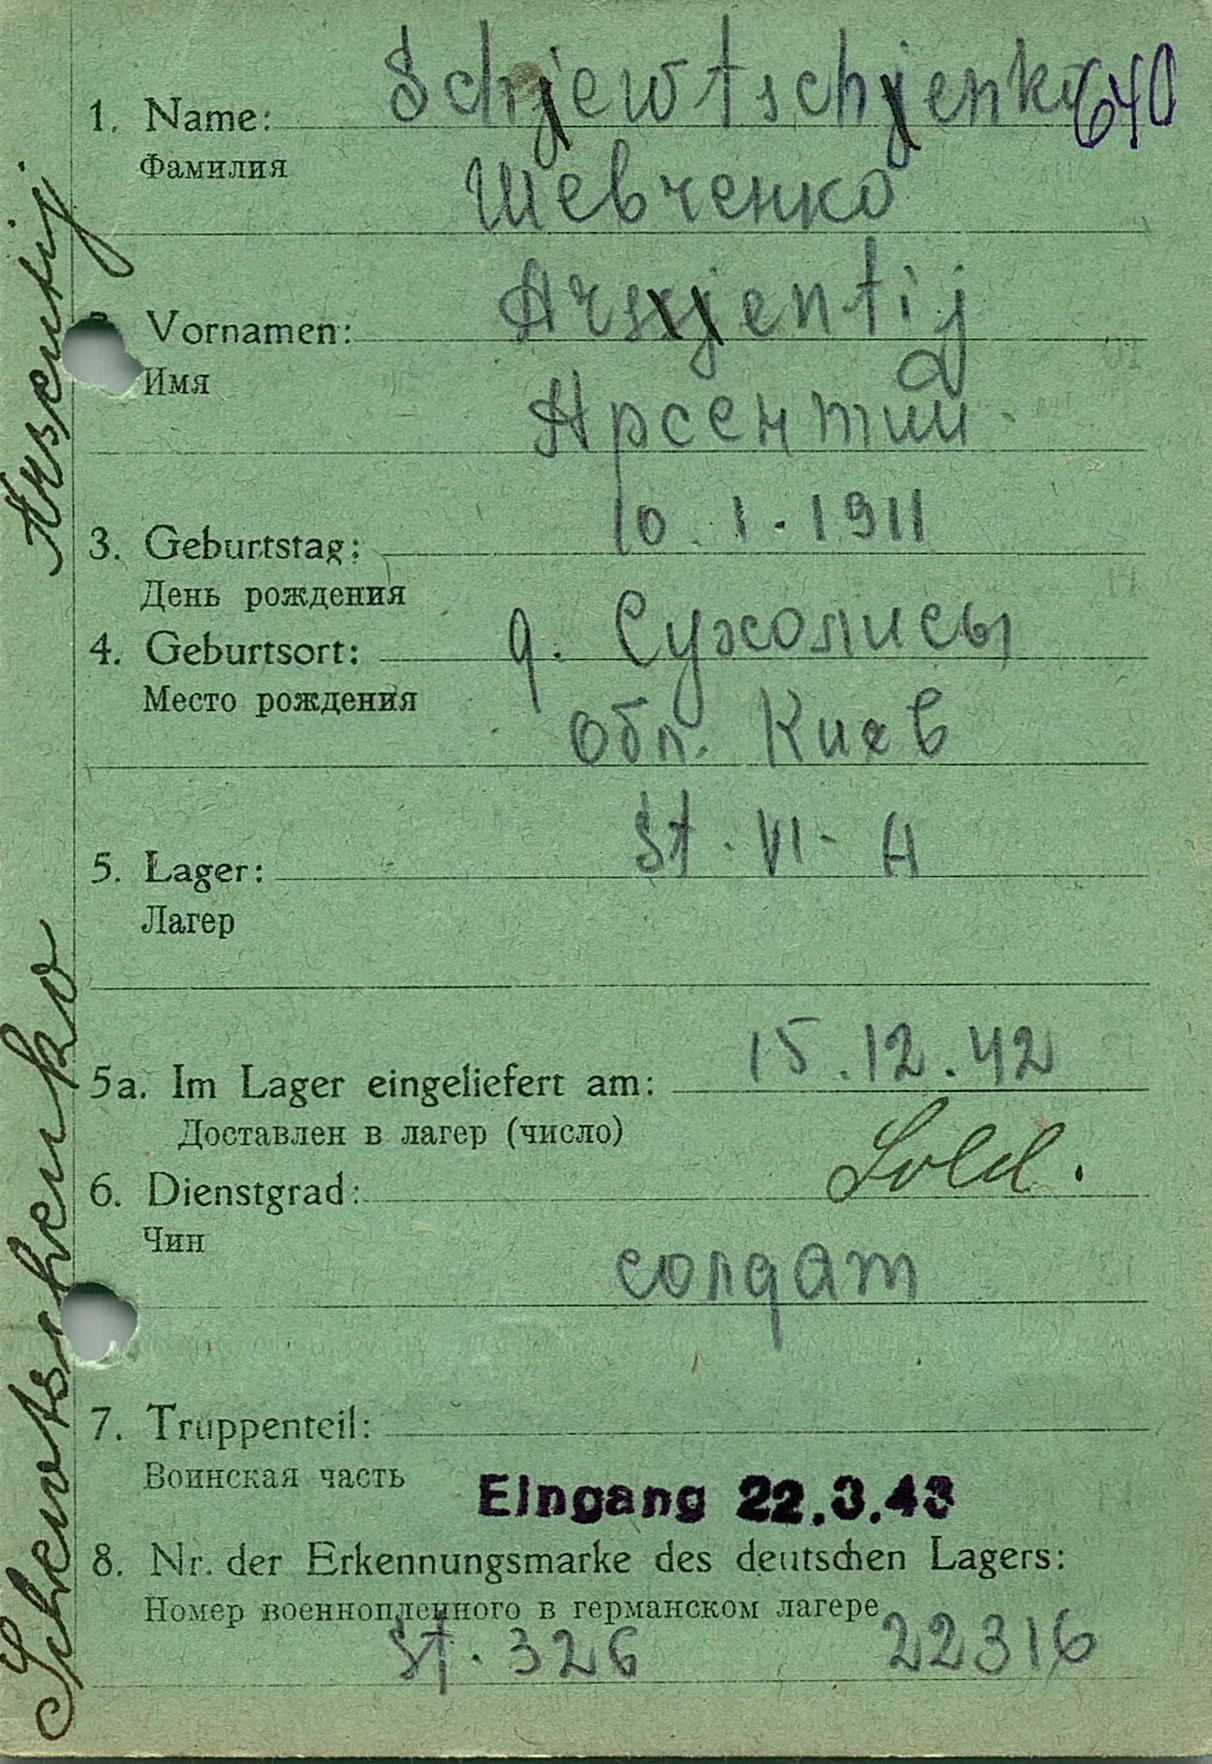 1. Name: Schjewtschjenko 640
Фамилия
Шевченко
Vornamen: Arsxjentij
Имя
Арсентий
3. Geburtstag: 10.1.1911
День рождения
4. Geburtsort: д. Сухолисы
Место рождения
обл. Киев
5. Lager: St. VI-A
Лагер
5a. Im Lager eingeliefert am: 15.12.42
Доставлен в лагер (число)
6. Dienstgrad: Sold.
Чин
солдат
7. Truppenteil:
Воинская часть
Eingang 22.3.43
8. Nr. der Erkennungsmarke des deutschen Lagers:
Номер военнопленного в германском лагере
St. 326 22316
Schewtschenko Arsentij